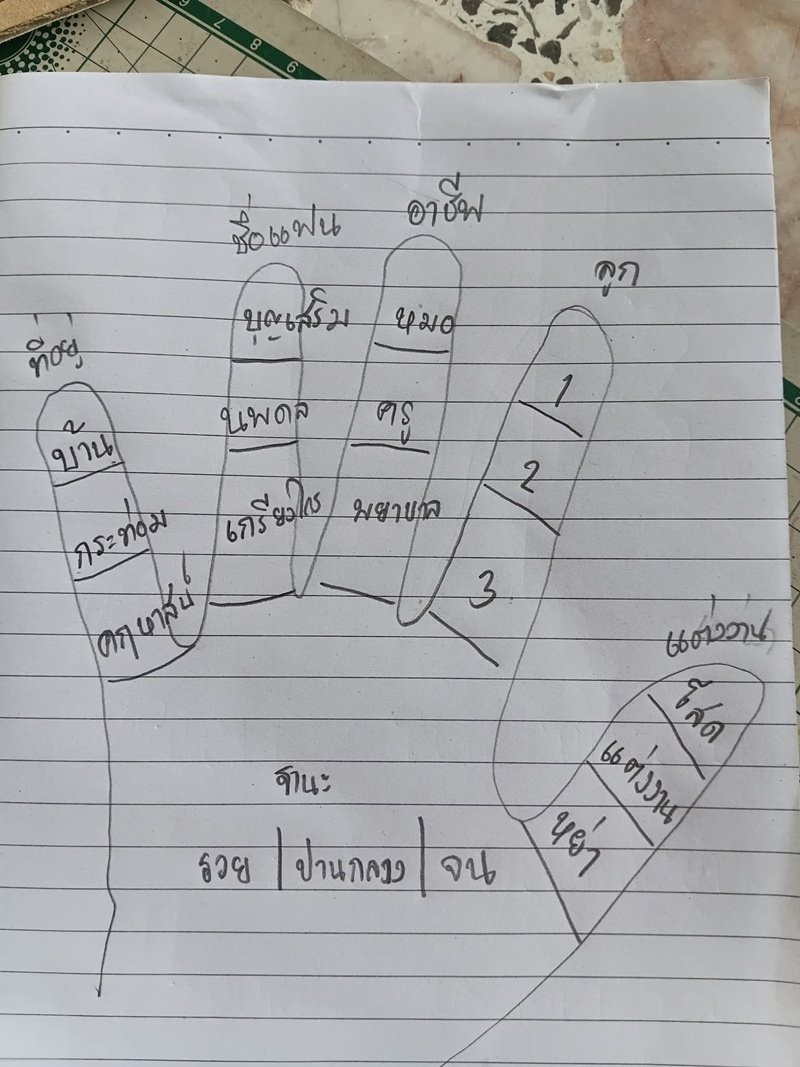 ที่อยู่
บ้าน
กระท่อม
คฤหาสน์
ชื่อแฟน
บุญเสริม
นพดล
เกรียงไกร
อาชีพ
หมอ
ครู
พยาบาล
ลูก
1
2
3
แต่งงาน
โสด
แต่งงาน
หย่า
ฐานะ
รวย | ปานกลาง | จน
6 8 7